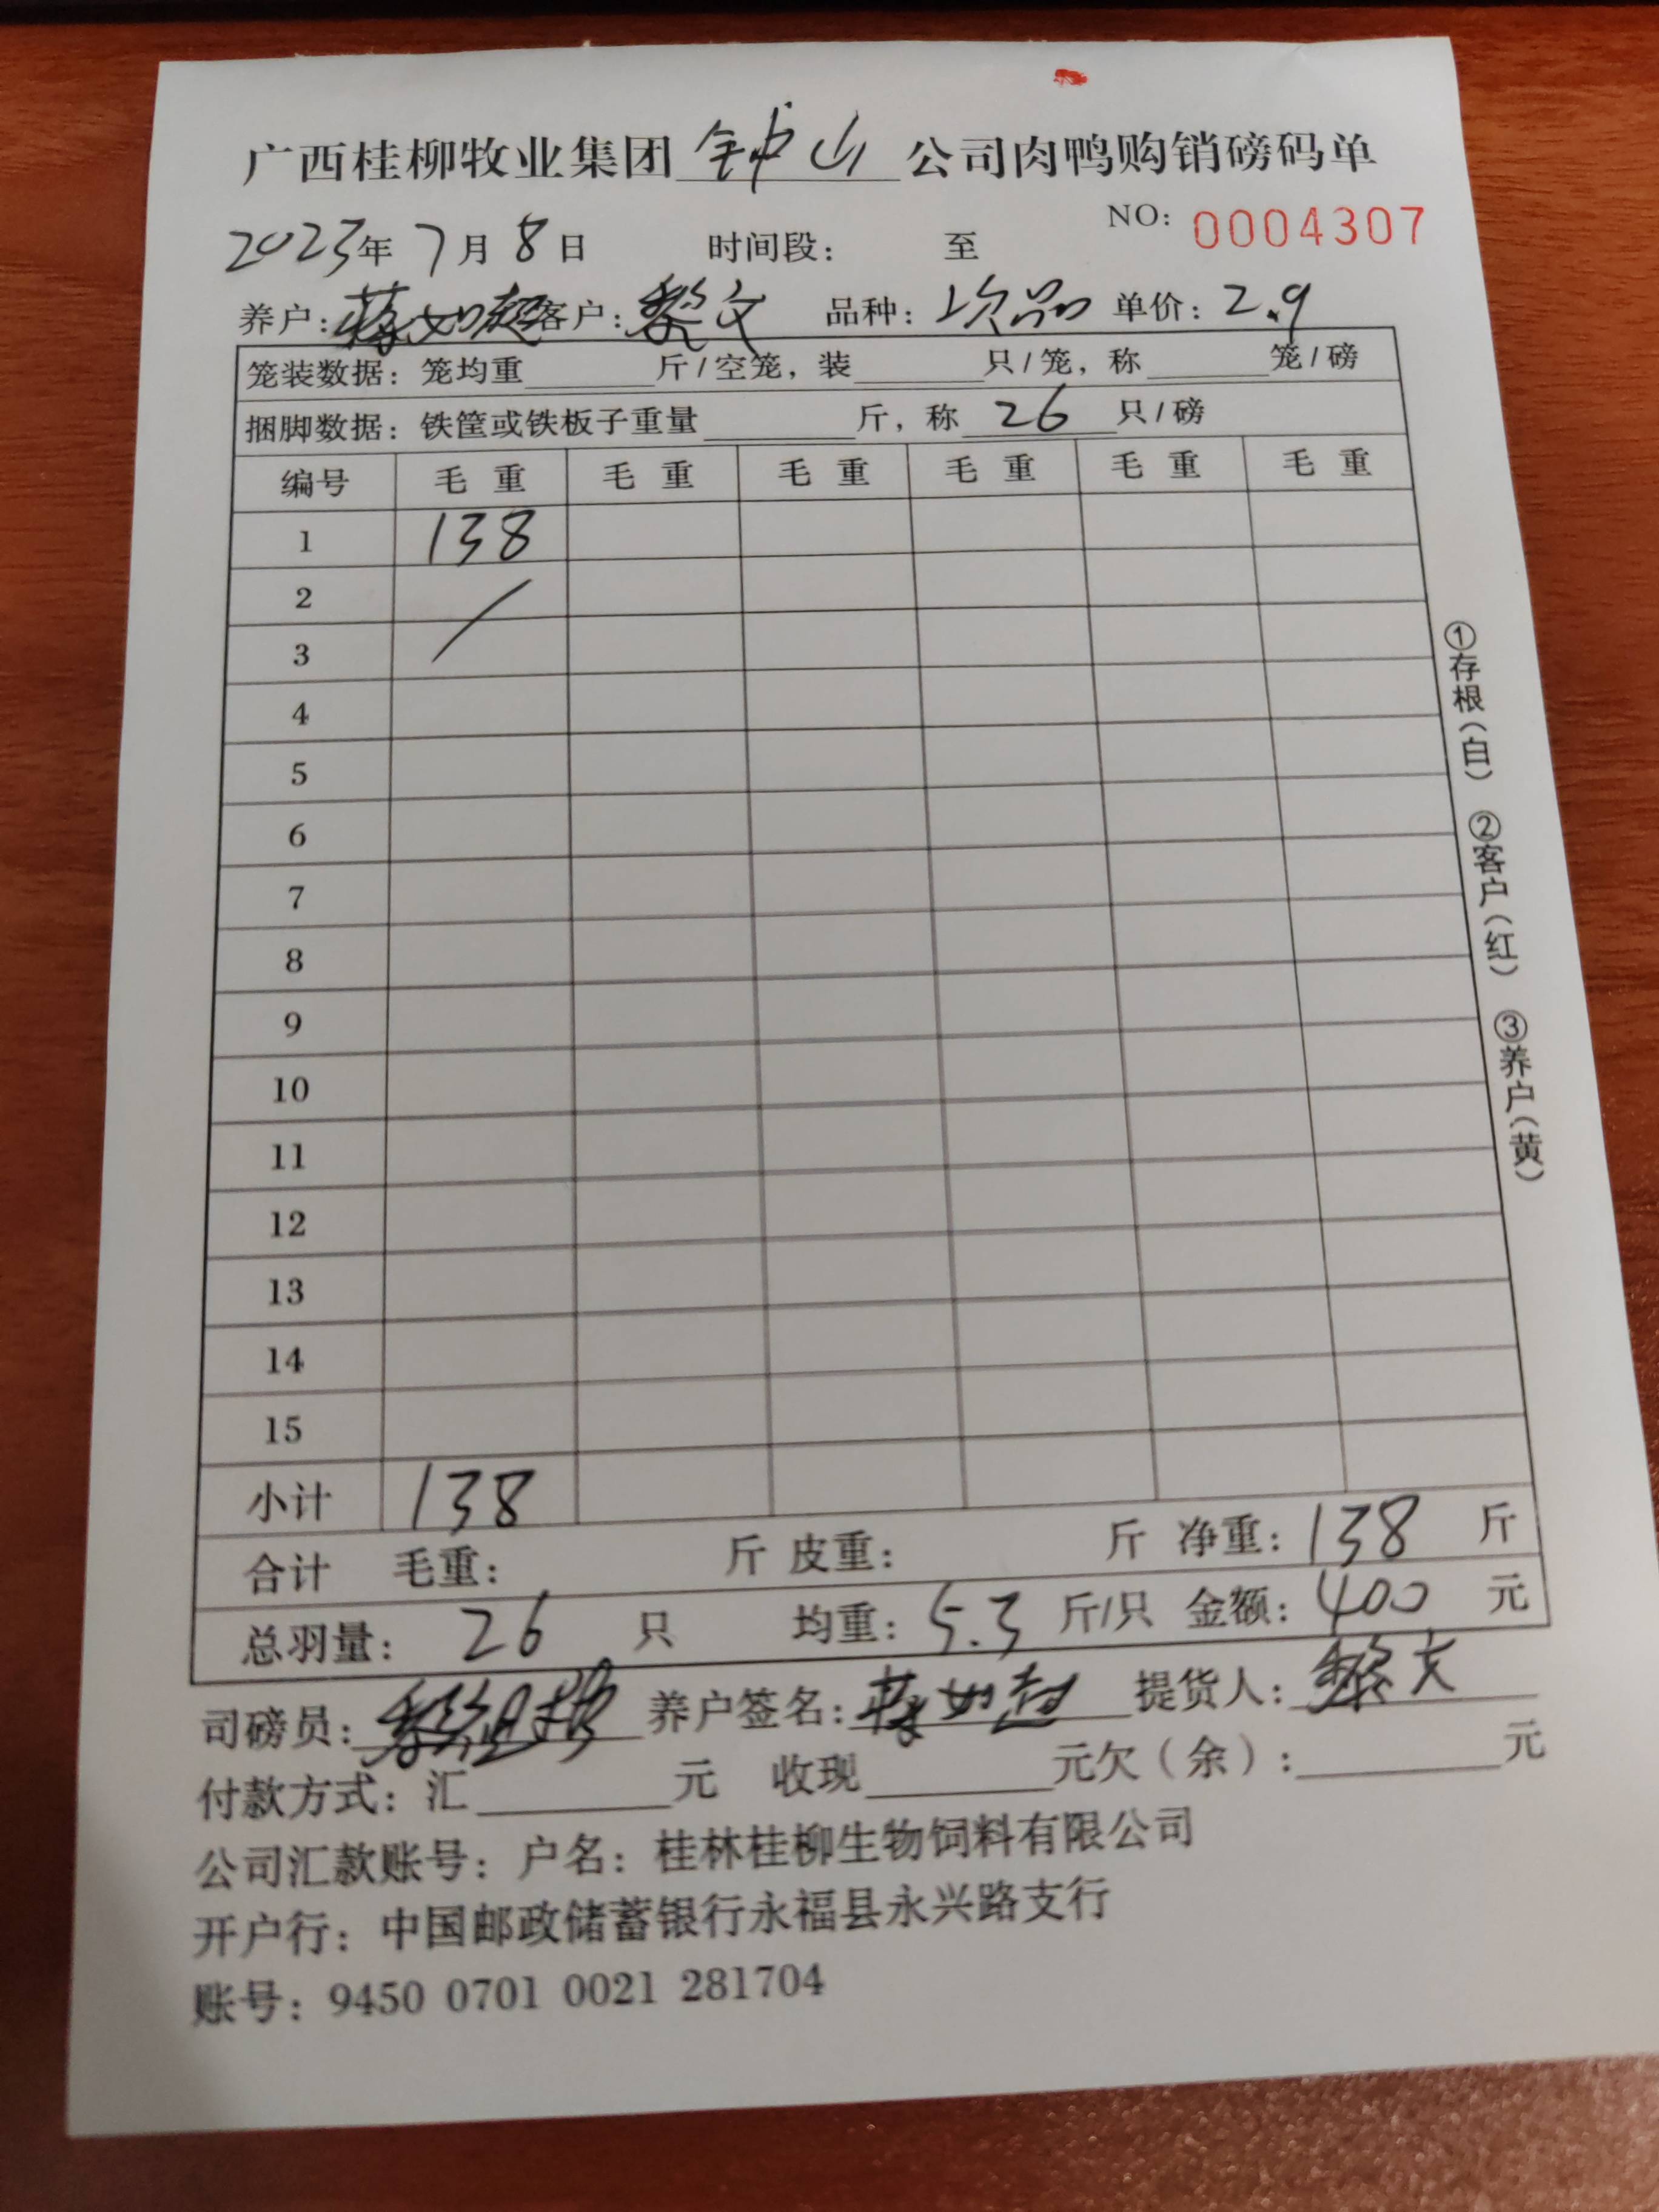 广西桂柳牧业集团 钟山 公司肉鸭购销磅码单
NO: 0004307
2023年 7月 8日 时间段: 至
养户: 蒋如超 客户: 黎文 品种: 次品 单价: 2.9
笼装数据: 笼均重______斤/空笼, 装______只/笼, 称______笼/磅
捆脚数据: 铁筐或铁板子重量______斤, 称 26 只/磅
编号 毛重 毛重 毛重 毛重 毛重 毛重
1 138
2
3
4
5
6
7
8
9
10
11
12
13
14
15
小计 138
合计 毛重: 斤 皮重: 斤 净重: 138 斤
总羽量: 26 只 均重: 5.3 斤/只 金额: 400 元
司磅员: 养户签名: 蒋如超 提货人: 黎文
付款方式: 汇______元 收现______元欠(余):______元
公司汇款账号: 户名: 桂林桂柳生物饲料有限公司
开户行: 中国邮政储蓄银行永福县永兴路支行
账号: 9450 0701 0021 281704
①存根(白) ②客户(红) ③养户(黄)